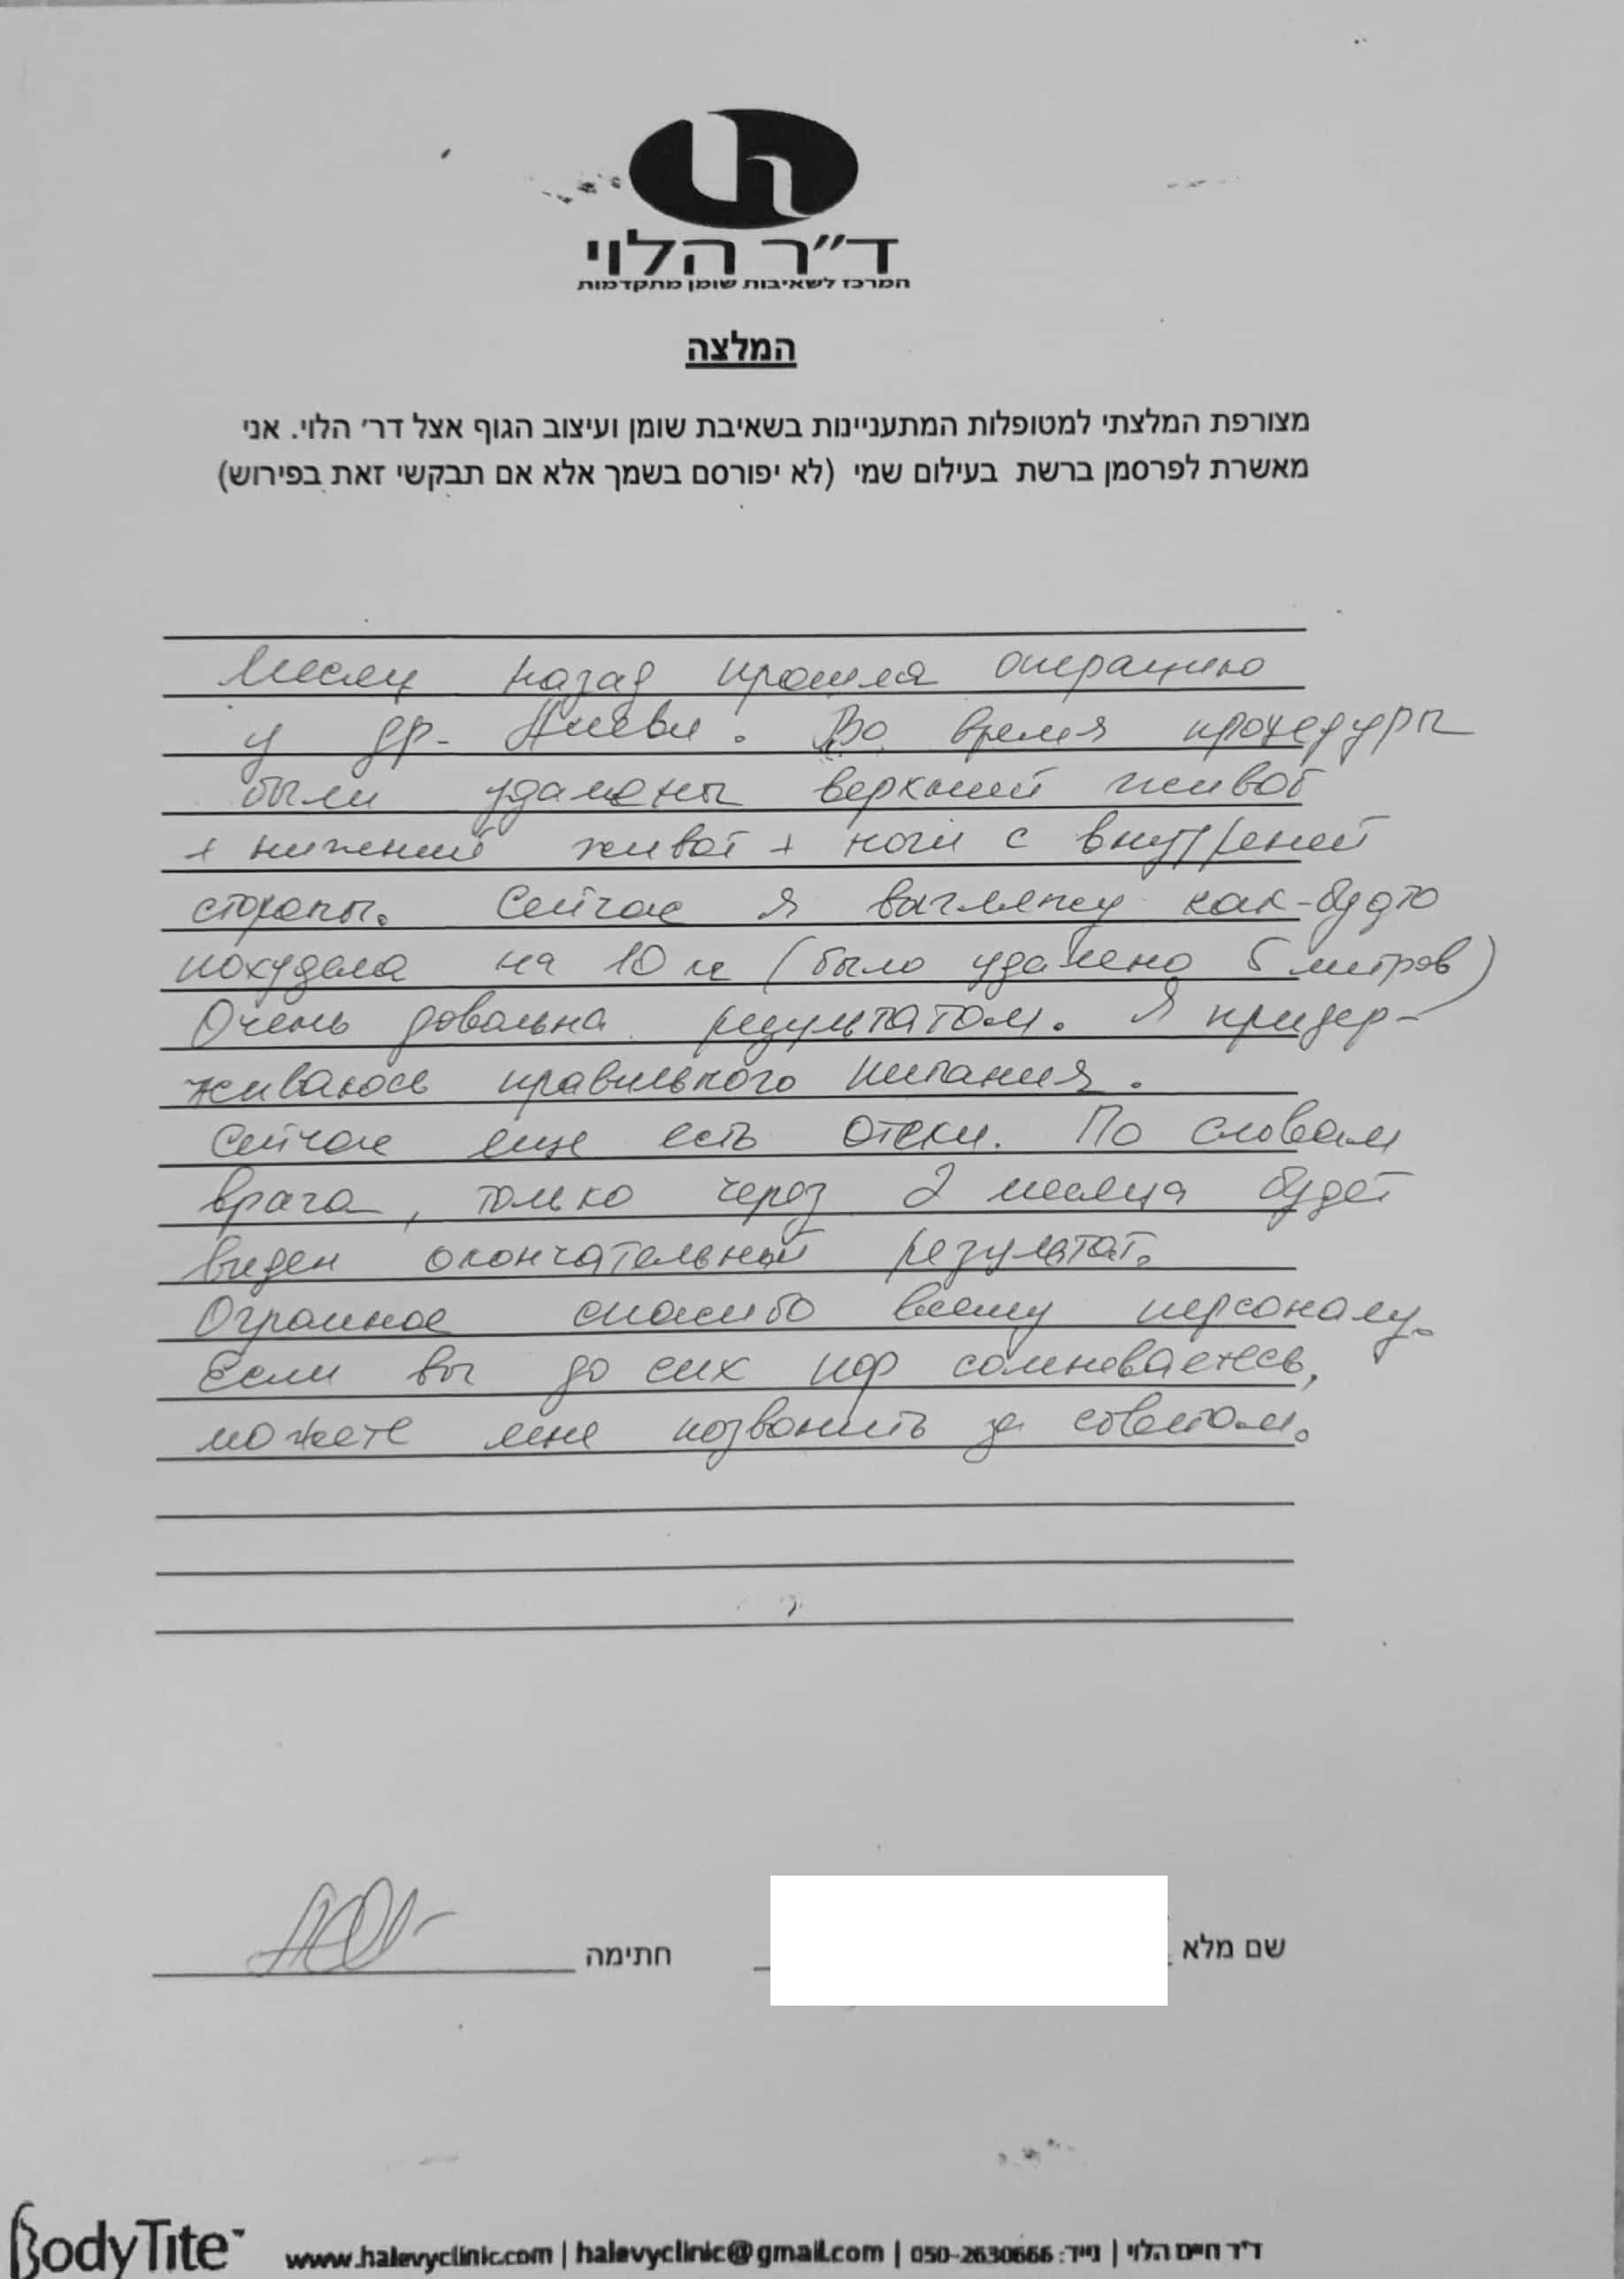 ד״ר הלוי
המרכז לשאיבות שומן מתקדמות
המלצה
מצורפת המלצתי למטופלות המתעניינות בשאיבת שומן ועיצוב הגוף אצל דר׳ הלוי. אני
מאשרת לפרסמן ברשת בעילום שמי (לא יפורסם בשמך אלא אם תבקשי זאת בפירוש)
Месяц назад прошла операцию
у др- Алеви. Во время процедуры
были удалены верхний живот
+ нижний живот + ноги с внутреней
стороны. Сейчас я выгляжу как-будто
похудела на 10 кг (было удалено 5 литров)
Очень довольна результатом. Я придер-
живаюсь правильного питания.
Сейчас еще есть отеки. По словам
врача, только через 2 месяца будет
виден окончательный результат.
Огромное спасибо всему персоналу.
Если вы до сих пор сомневаетесь,
можете мне позвонить за советом.
שם מלא
חתימה
BodyTite
www.halevyclinic.com | halevyclinic@gmail.com | ד״ר חיים הלוי | נייד: 050-2630666